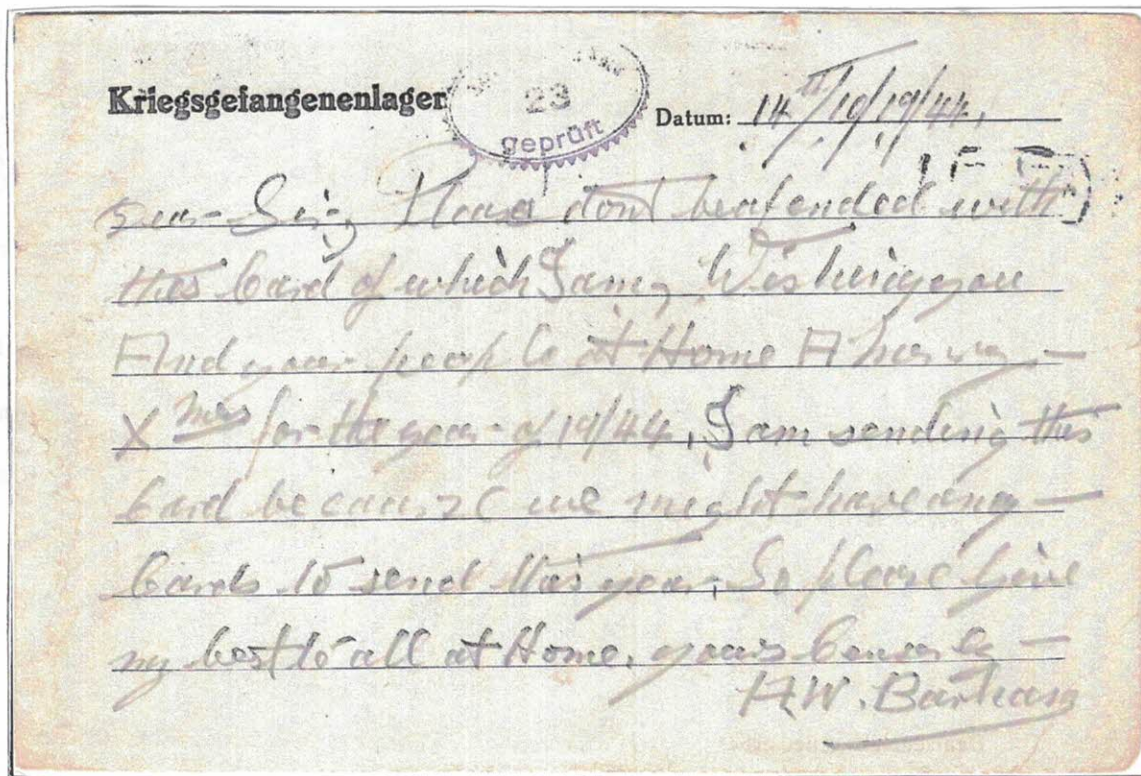 Kriegsgefangenenlager
23
geprüft
Datum: 14th/10/19/44,
Dear-Sir, Please dont beafended with
this Card of which I am, Wishing you
And your people at Home A
Xmas for the year of 19/44, I am sending this
Card because we might have any
Cards to send this year, So please give
my best to all at Home, yours
A.W.